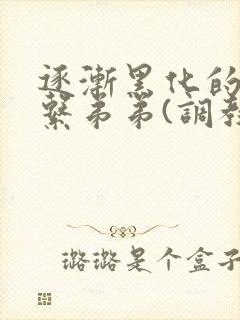 逐漸黑化的
繫弟弟(調教
璐璐是个盒子